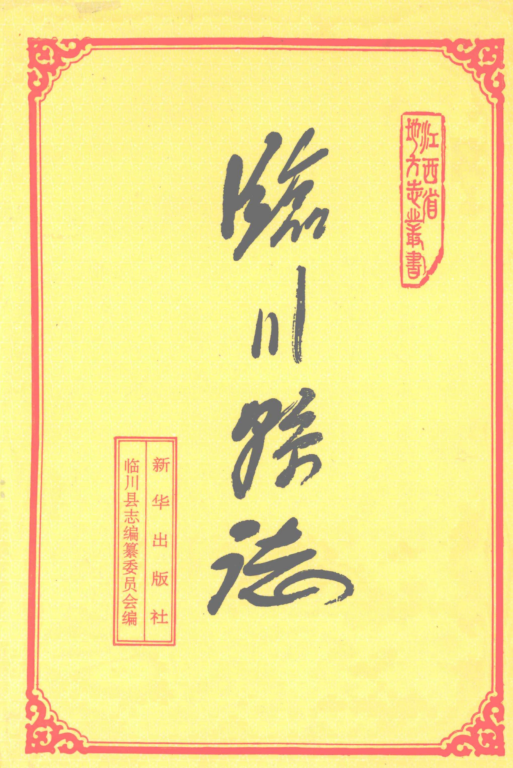 江西省
地方志丛書
臨川縣誌
新华出版社
临川县志编纂委员会编